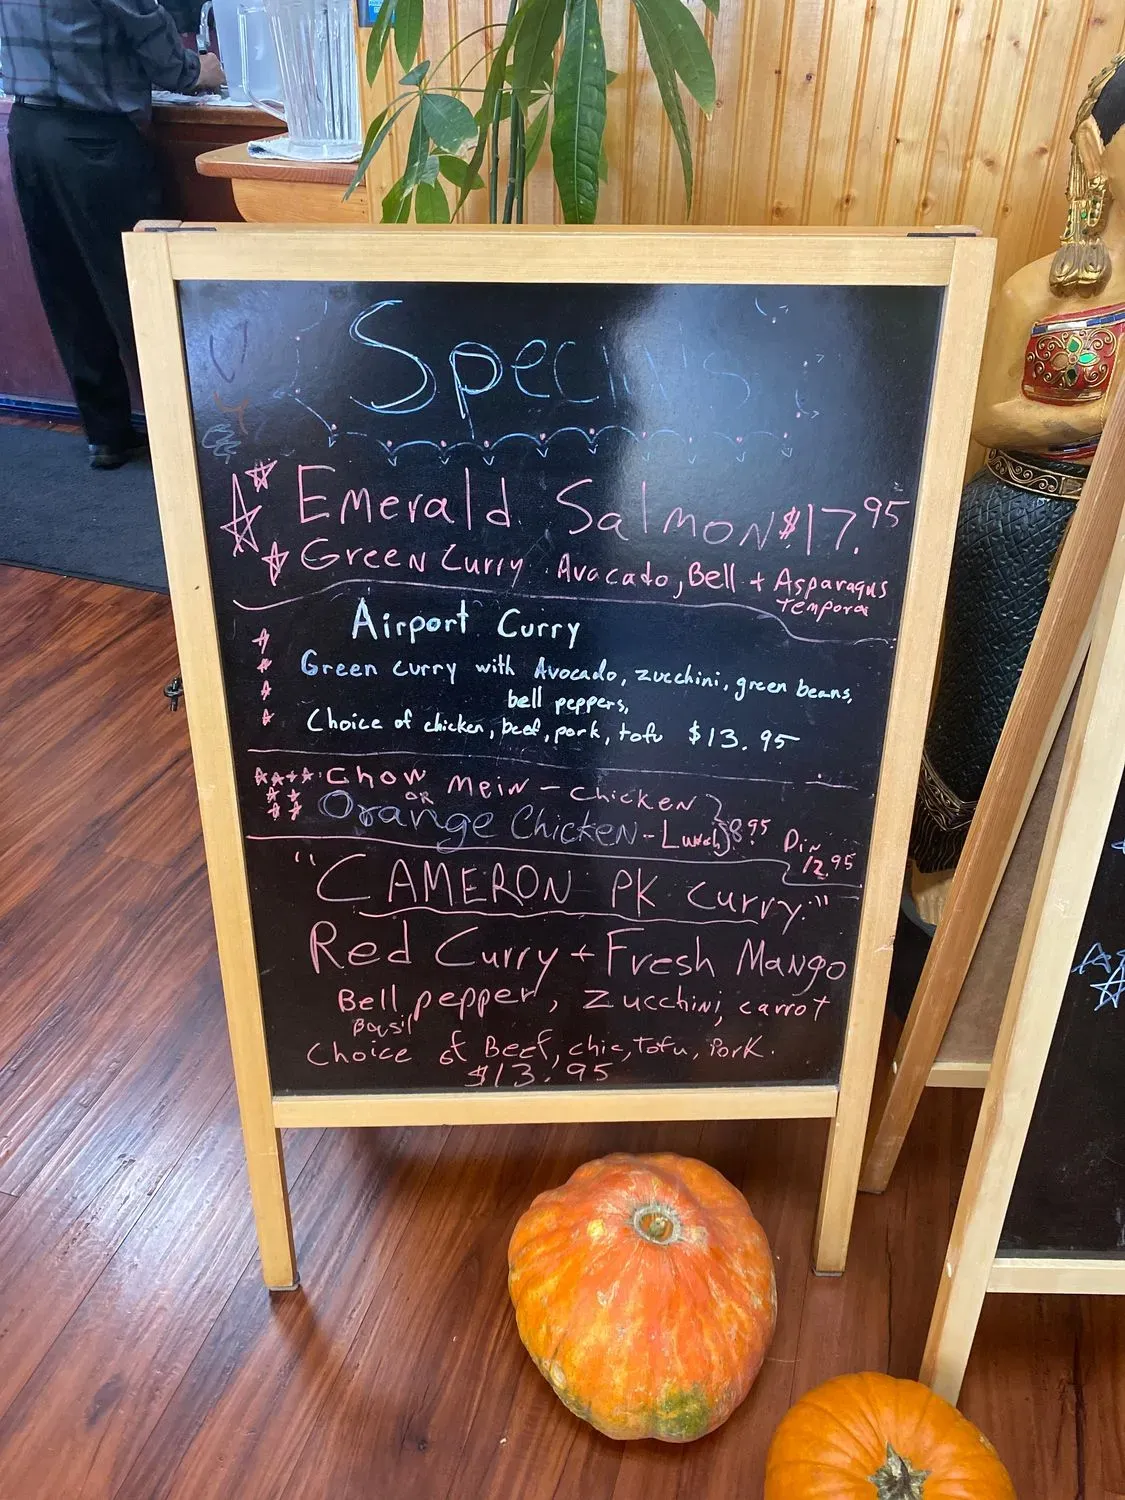 Specials
Emerald Salmon $17.95
Green Curry Avacado, Bell + Asparagus
Tempora
Airport Curry
Green curry with Avocado, zucchini, green beans,
bell peppers,
Choice of chicken, beef, pork, tofu $13.95
Chow mein - chicken
OR
Orange Chicken - Lunch $8.95 Din 12.95
"CAMERON PK Curry"
Red Curry + Fresh Mango
Bell pepper, Zucchini, carrot
Basil
Choice of Beef, chic, Tofu, Pork.
$13.95